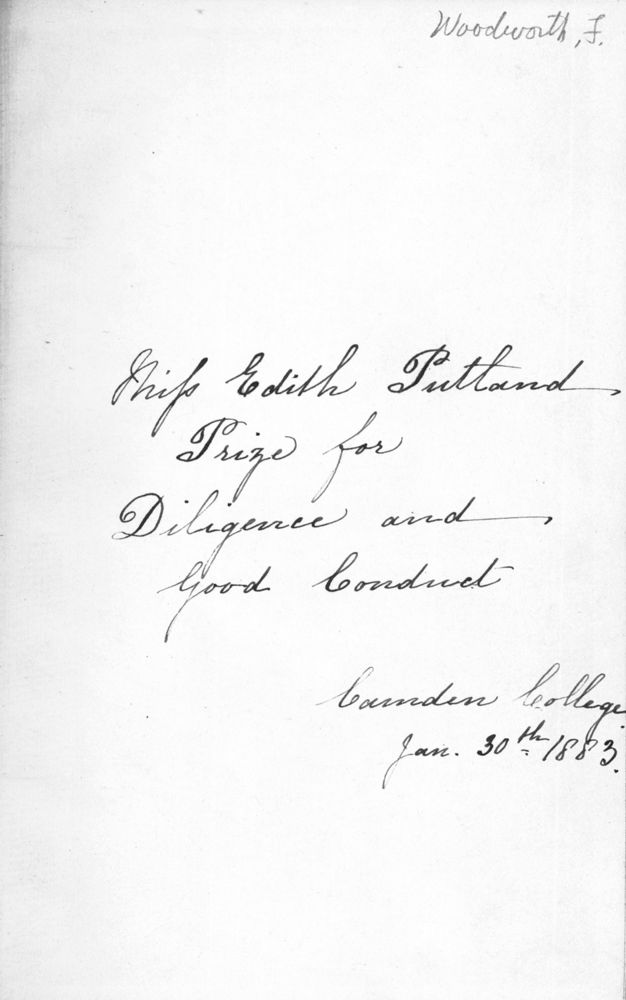 Woodworth, F.
Miss Edith Putland
Prize for
Diligence and
Good Conduct
Camden College.
Jan. 30th 1883.